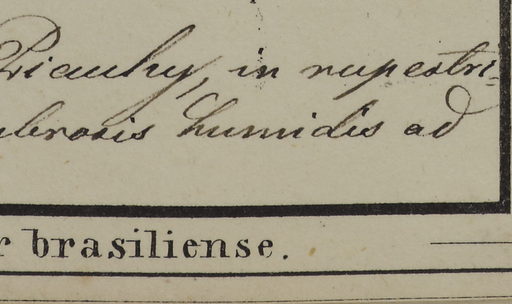 Piauhy, in rupestri-
umbrosis humidis ad
r brasiliense.